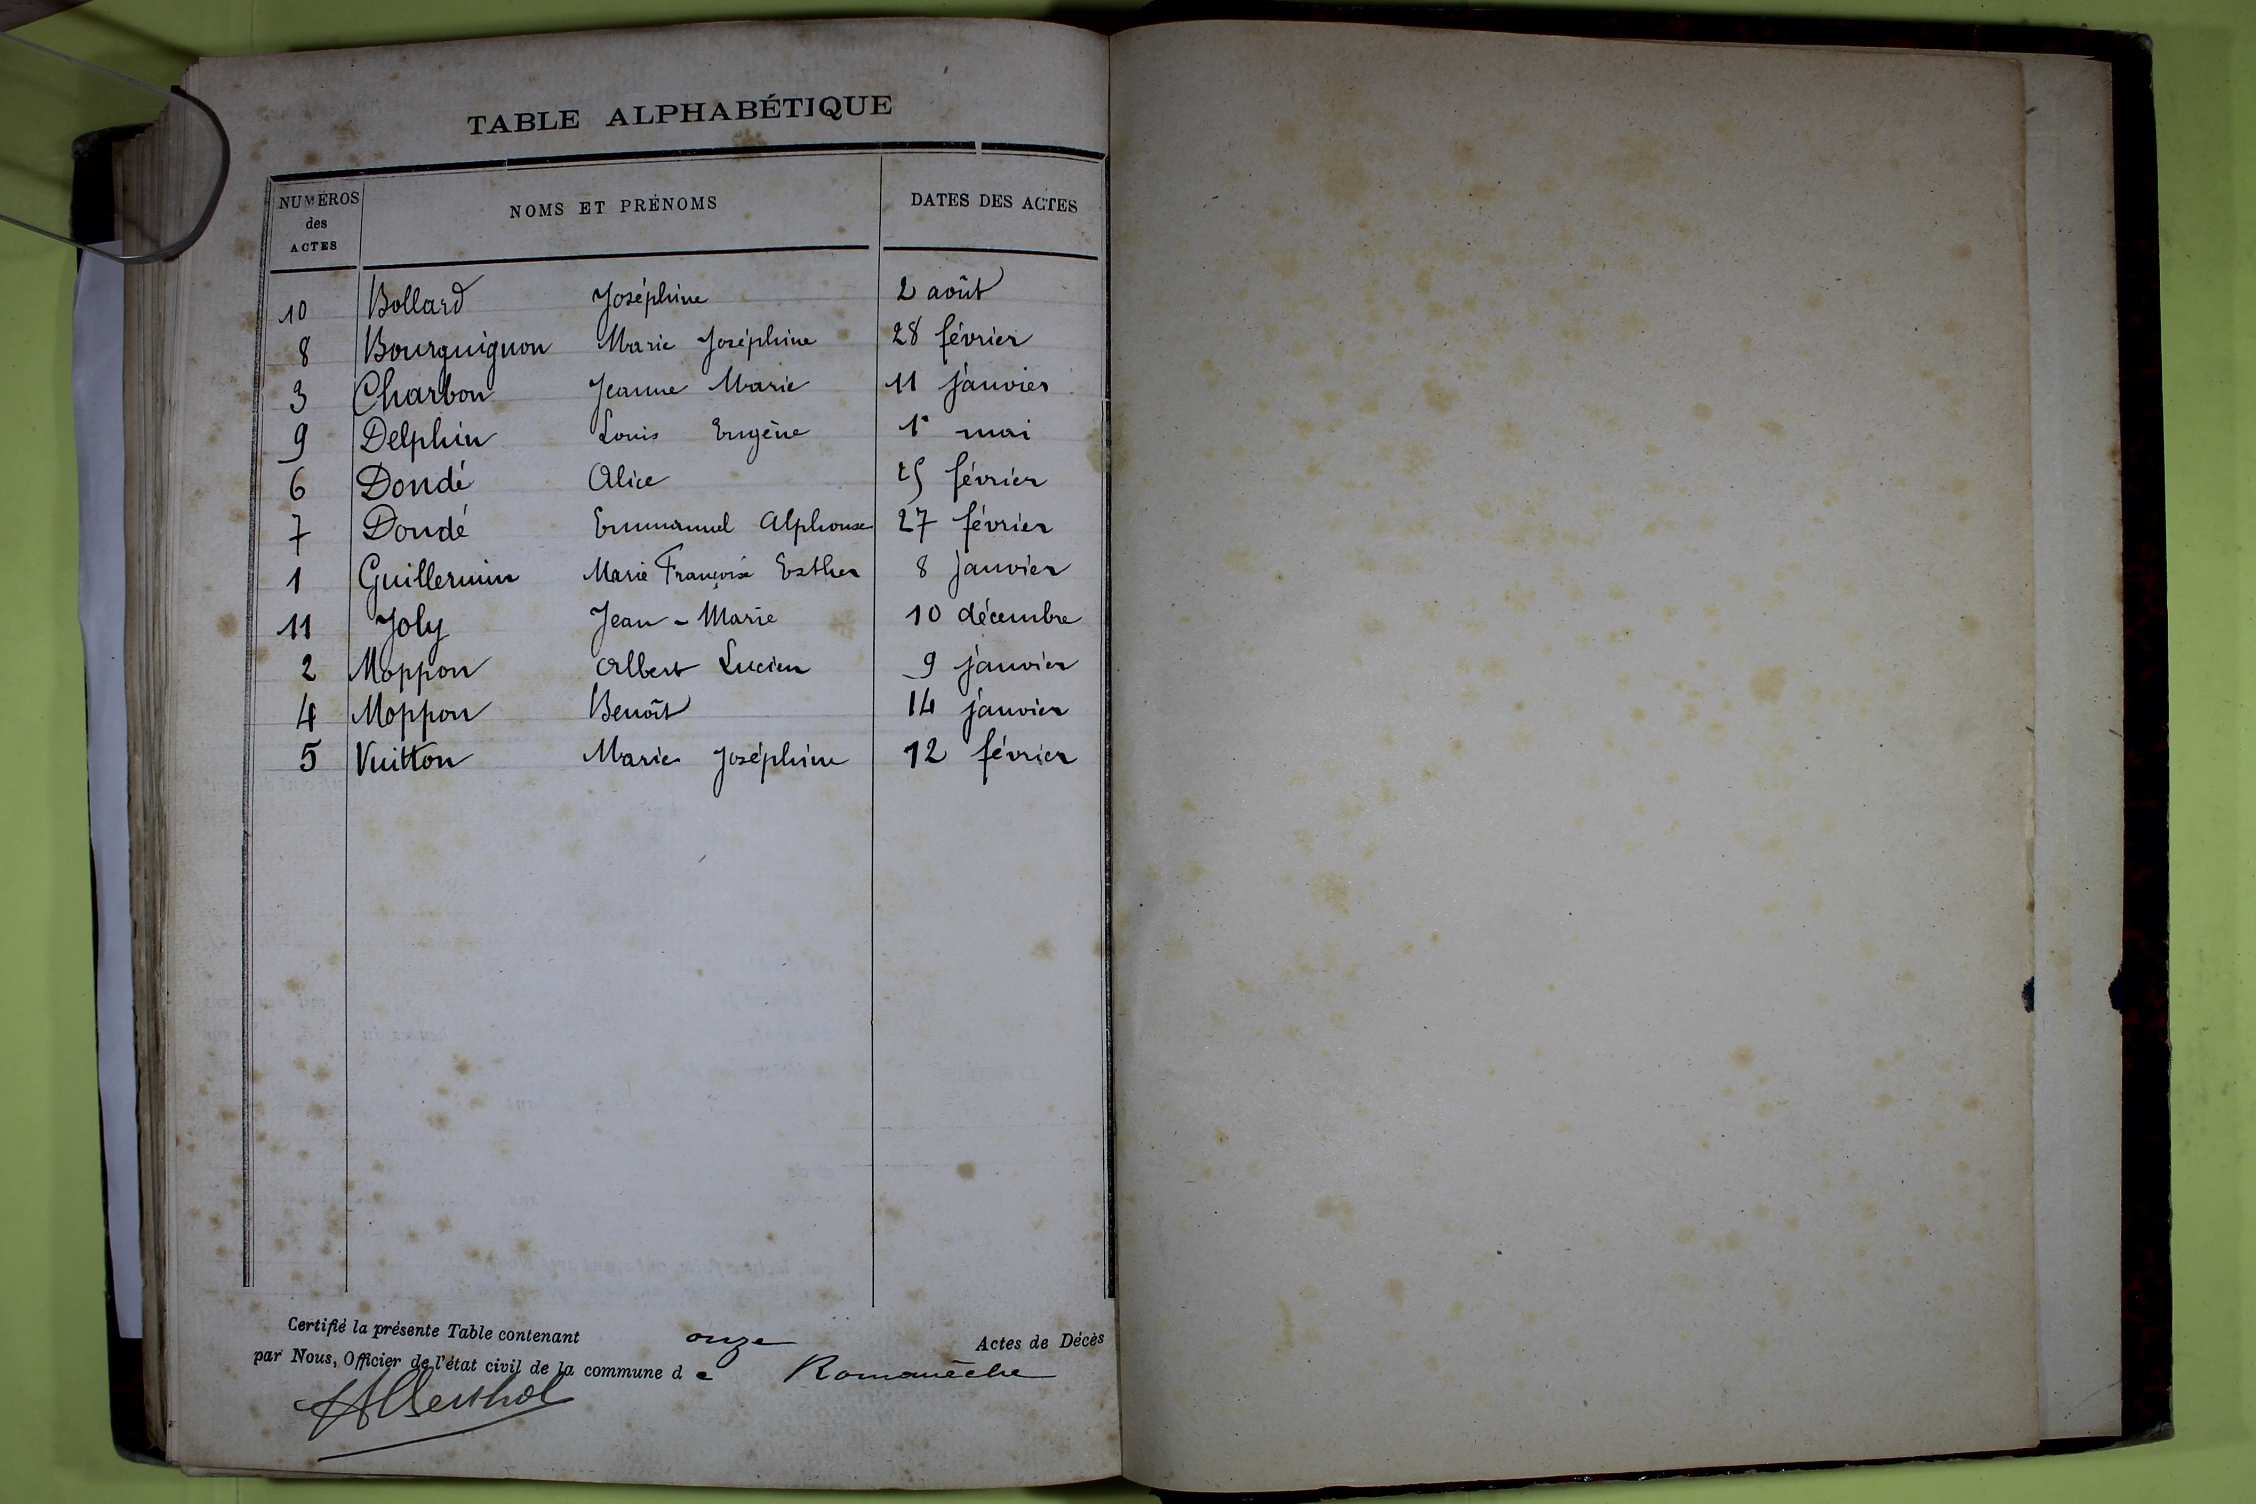 TABLE ALPHABÉTIQUE
NUMÉROS des ACTES NOMS ET PRÉNOMS DATES DES ACTES
10 Bollard Joséphine 2 août
8 Bourguignon Marie Joséphine 28 février
3 Charbon Jeanne Marie 11 janvier
9 Delphin Louis Eugène 1r mai
6 Dondé Alice 25 février
7 Dondé Emmanuel Alphonse 27 février
1 Guillermin Marie Françoise Esther 8 janvier
11 Joly Jean-Marie 10 décembre
2 Moppon Albert Lucien 9 janvier
4 Moppon Benoît 14 janvier
5 Vuitton Marie Joséphine 12 février
Certifié la présente Table contenant onze Actes de Décès
par Nous, Officier de l'état civil de la commune de Romanèche